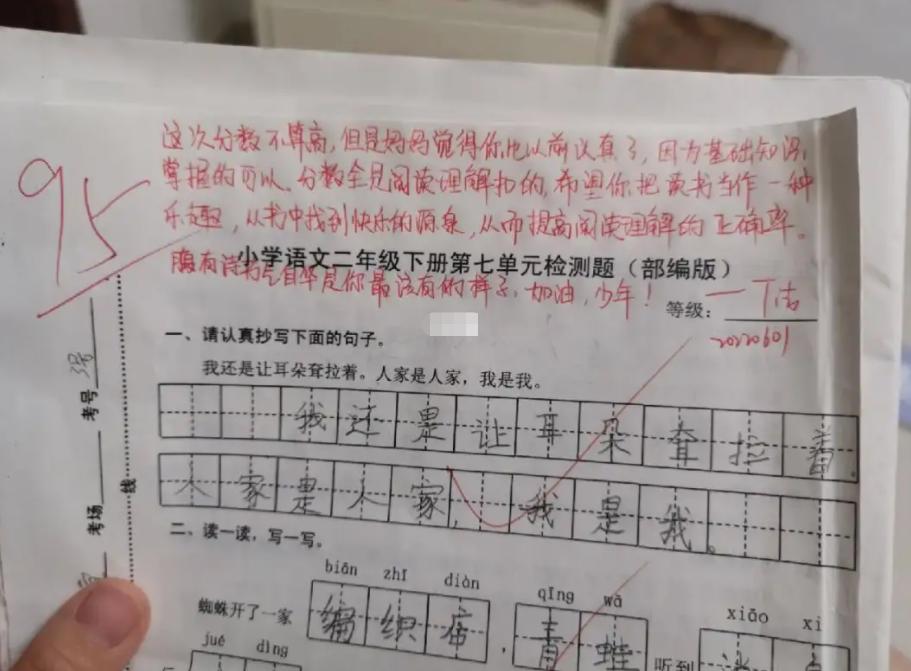 这次分数不算高,但是妈妈觉得你比以前认真了,因为基础知识
掌握的可以、分数全是阅读理解扣的,希望你把读书当作一种
乐趣,从书中找到快乐的源泉,从而提高阅读理解的正确率。
95
小学语文二年级下册第七单元检测题(部编版)
腹有诗书气自华是你最该有的样子,加油,少年!
等级:
20220601
一、请认真抄写下面的句子。
我还是让耳朵耷拉着。人家是人家,我是我。
我还是让耳朵耷拉着。
人家是人家,我是我。
二、读一读,写一写。
biān zhī diàn
qīng wā
xiāo xi
蜘蛛开了一家 编织店
青蛙
听到
jué dìng
考号
考场
线